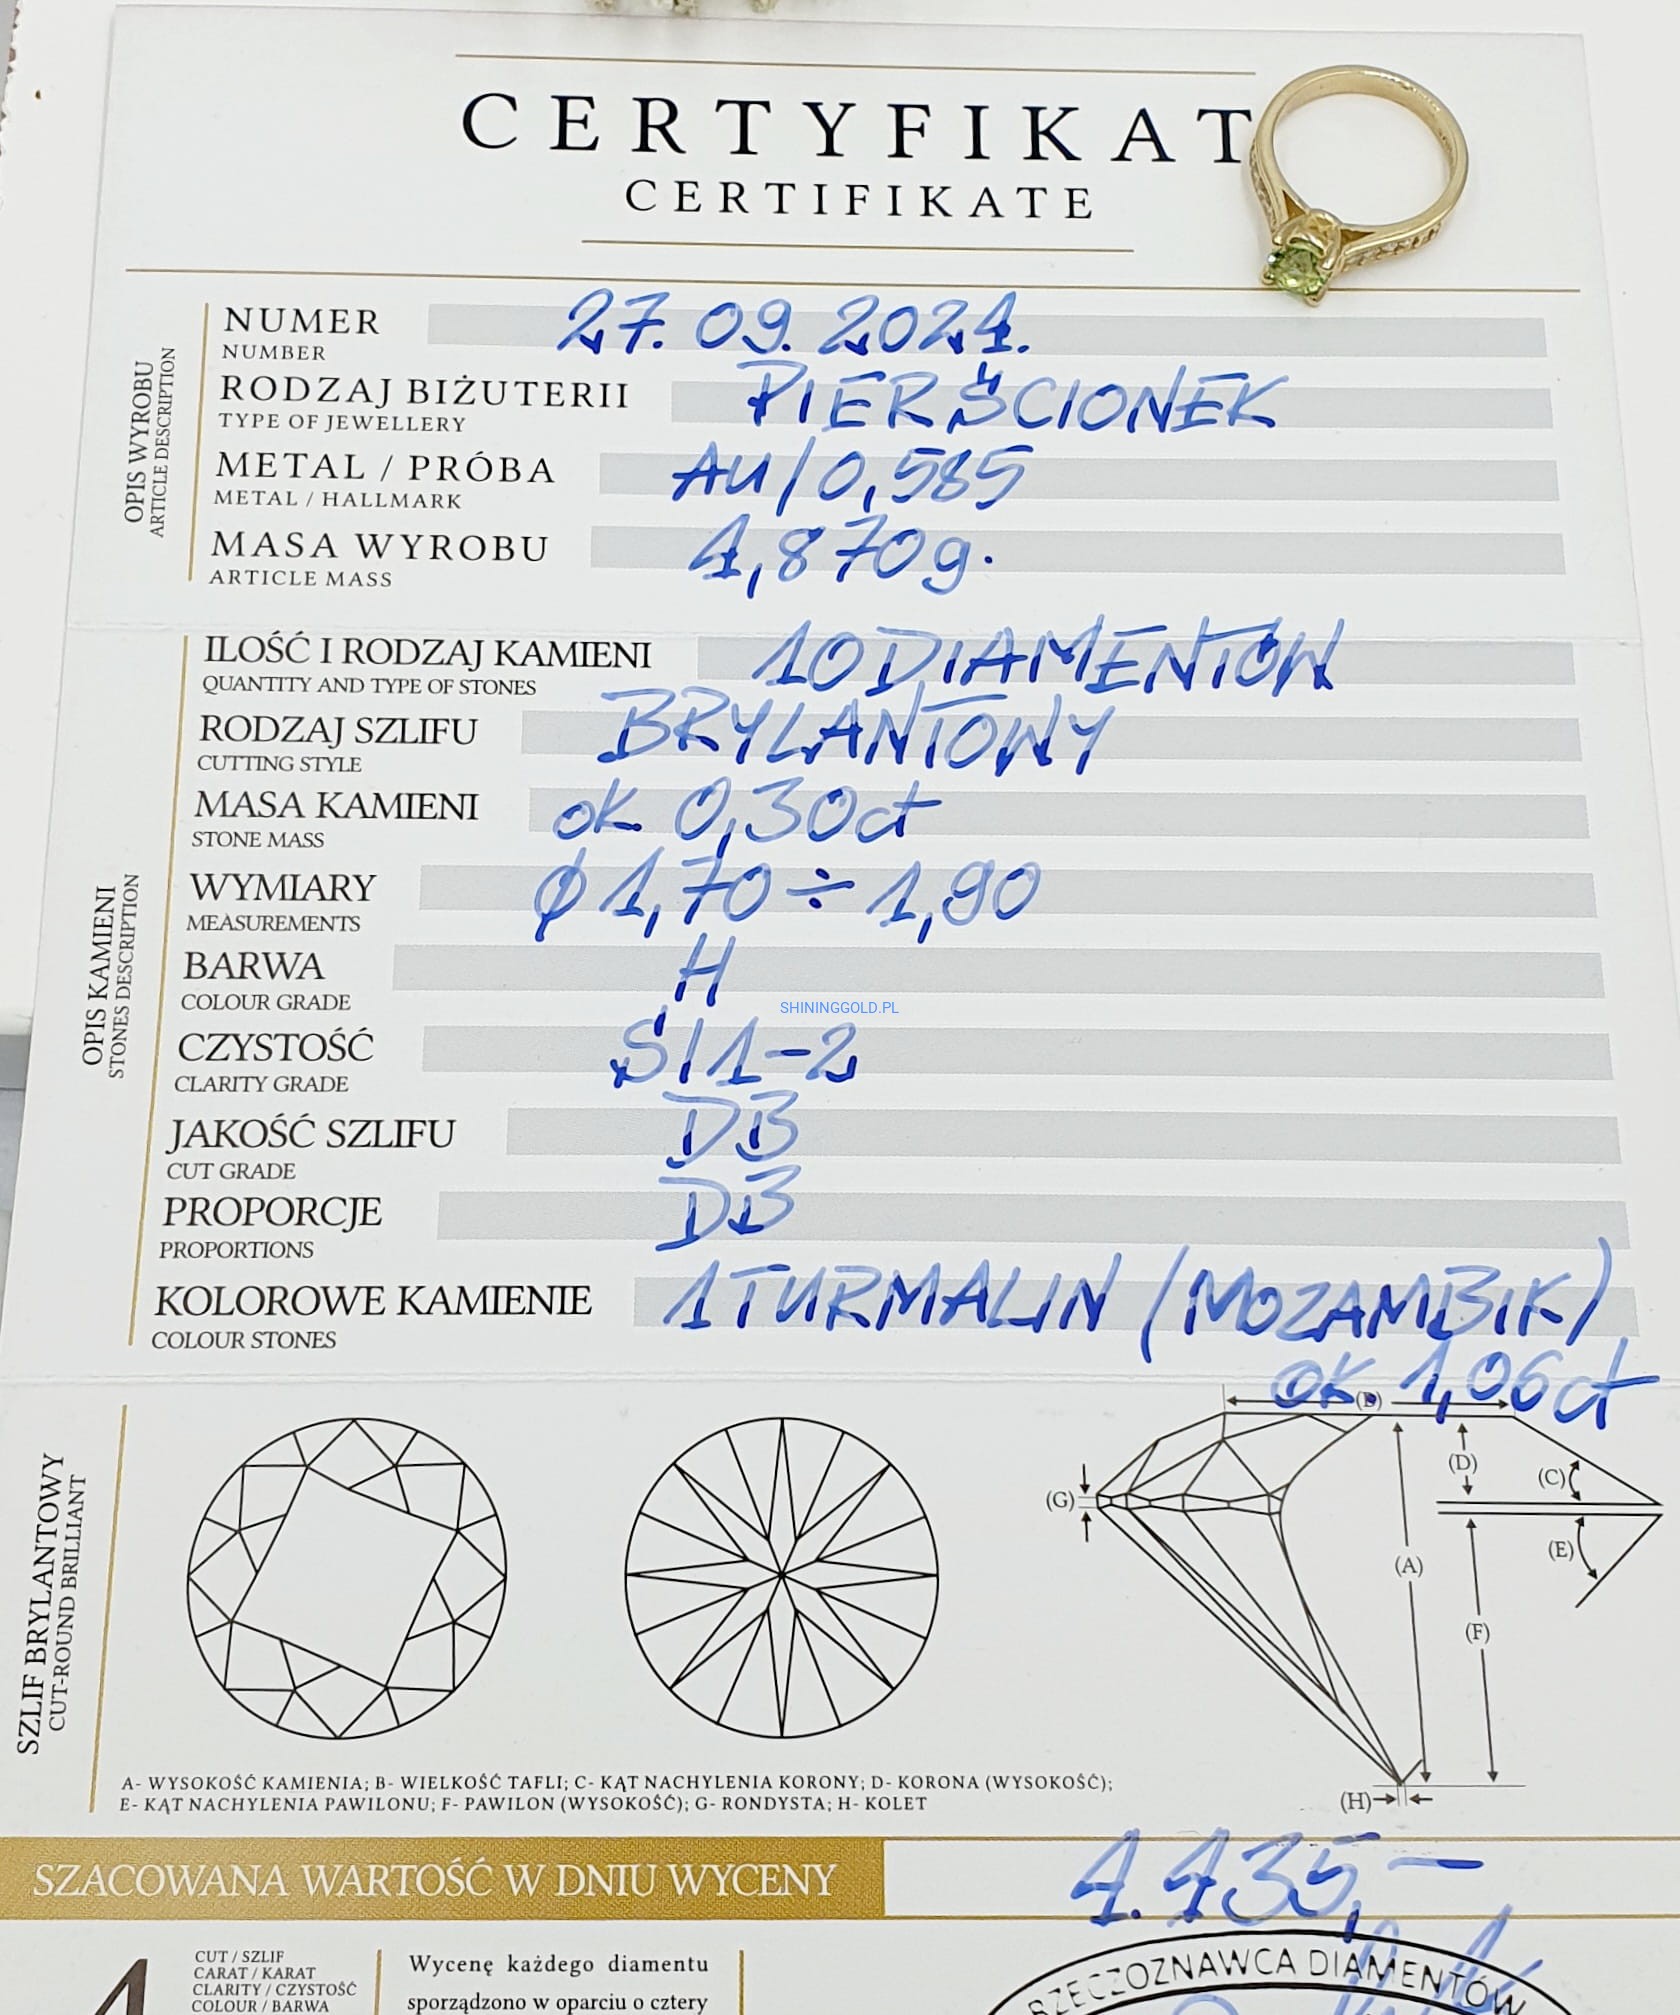 CERTYFIKAT
CERTIFIKATE
NUMER 27.09.2024.
NUMBER
RODZAJ BIŻUTERII PIERŚCIONEK
TYPE OF JEWELLERY
METAL / PRÓBA AU/0,585
METAL / HALLMARK
MASA WYROBU 4,870g.
ARTICLE MASS
OPIS WYROBU
ARTICLE DESCRIPTION
ILOŚĆ I RODZAJ KAMIENI 10 DIAMENTÓW
QUANTITY AND TYPE OF STONES
RODZAJ SZLIFU BRYLANTOWY
CUTTING STYLE
MASA KAMIENI ok. 0,30ct
STONE MASS
WYMIARY ϕ 1,70 ÷ 1,90
MEASUREMENTS
BARWA H
COLOUR GRADE
SHININGGOLD.PL
CZYSTOŚĆ SI1-2
CLARITY GRADE
JAKOŚĆ SZLIFU DB
CUT GRADE
PROPORCJE DB
PROPORTIONS
KOLOROWE KAMIENIE 1 TURMALIN (MOZAMBIK)
COLOUR STONES
ok. 1,06ct
OPIS KAMIENI
STONES DESCRIPTION
SZLIF BRYLANTOWY
CUT-ROUND BRILLIANT
(B)
(D)
(C)
(G)
(E)
(A)
(F)
(H)
A- WYSOKOŚĆ KAMIENIA; B- WIELKOŚĆ TAFLI; C- KĄT NACHYLENIA KORONY; D- KORONA (WYSOKOŚĆ);
E- KĄT NACHYLENIA PAWILONU; F- PAWILON (WYSOKOŚĆ); G- RONDYSTA; H- KOLET
SZACOWANA WARTOŚĆ W DNIU WYCENY 4.435,-
4
CUT / SZLIF
CARAT / KARAT
CLARITY / CZYSTOŚĆ
COLOUR / BARWA
Wycenę każdego diamentu
sporządzono w oparciu o cztery
RZECZOZNAWCA DIAMENTÓW